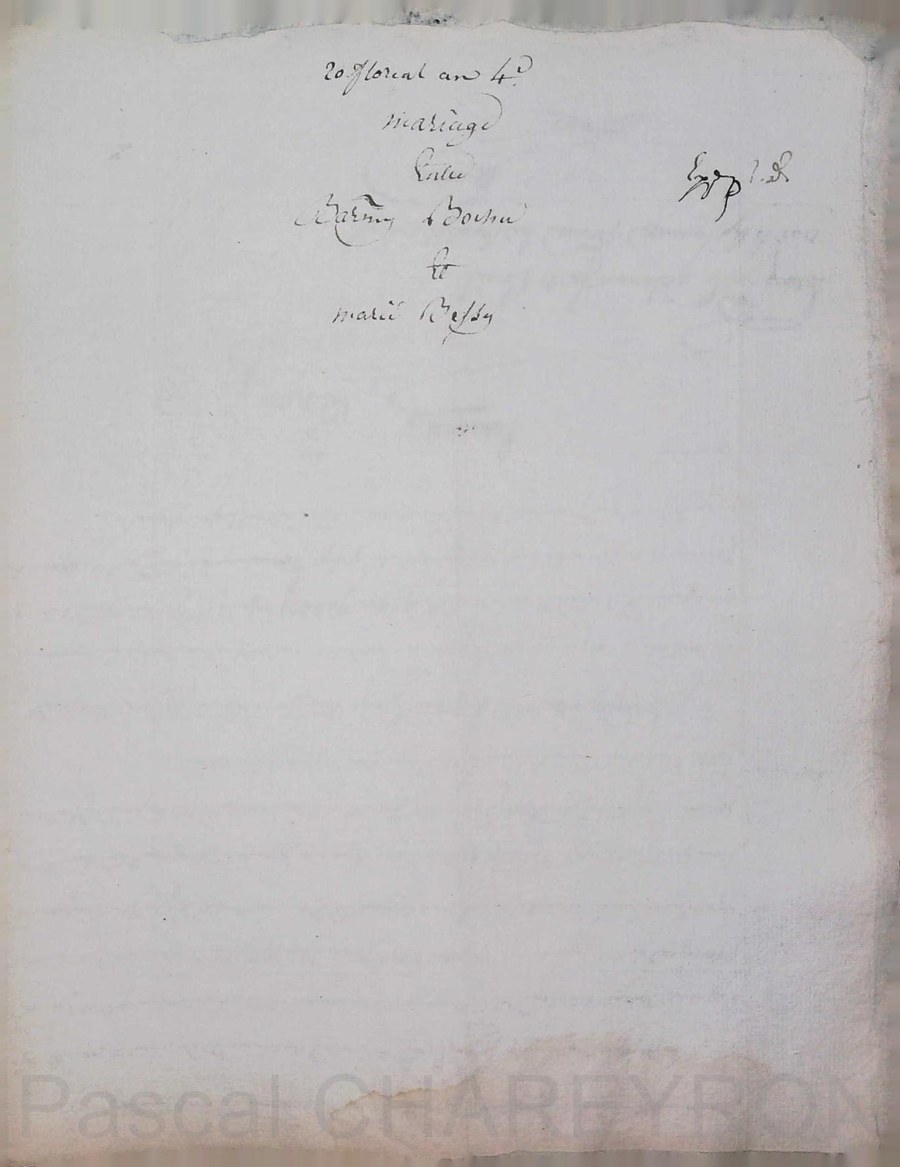 20 floreal an 4e
mariage
Entre
Barmy Bochu
Et
marie Bessy
Exp
Pascal CHAREYRON